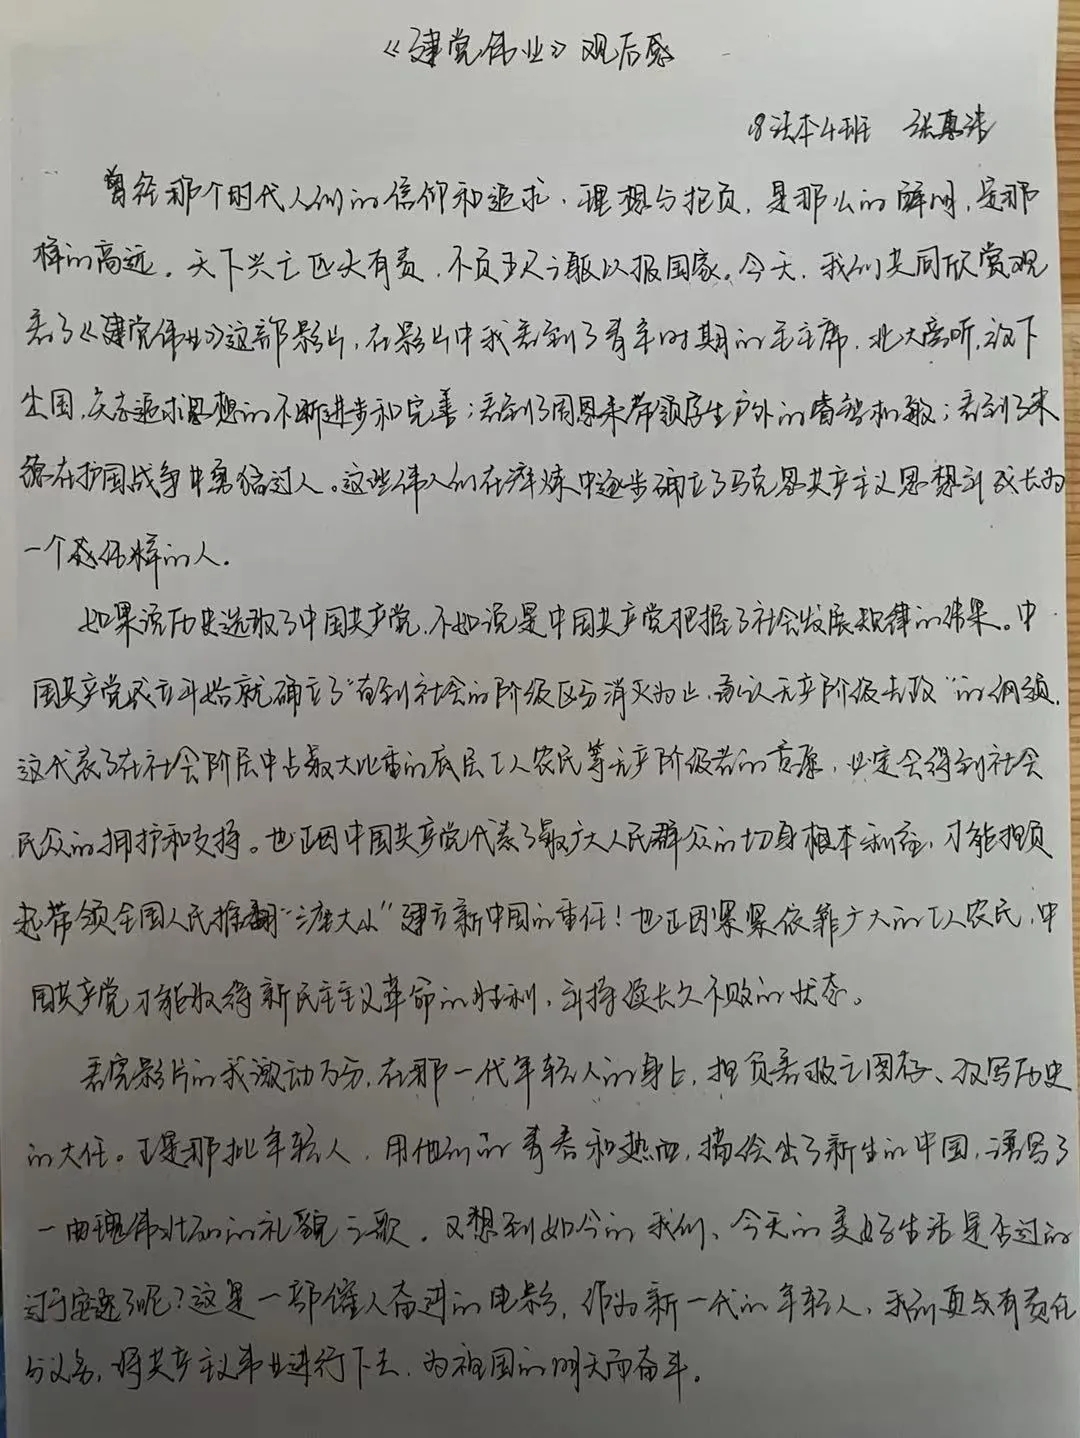 《建党伟业》观后感
18法本4班 张惠
曾经那个时代人们的信仰和追求，理想与抱负，是那么的鲜明，是那
样的高远。天下兴亡匹夫有责，不负五尺之躯以报国家。今天，我们共同欣赏观
看了《建党伟业》这部影片，在影片中我看到了青年时期的毛主席，北大旁听，放下
出国，矢志追求思想的不断进步和完善；看到了周恩来带领学生户外的睿智机敏；看到了朱
德在护国战争中勇猛过人。这些伟人们在淬炼中逐步确立了马克思共产主义思想到成长为
一个个伟大的人。
如果说历史选取了中国共产党，不如说是中国共产党把握了社会发展规律的结果。中
国共产党成立开始就确立了“直到社会的阶级区分消灭为止，承认无产阶级专政”的纲领，
这代表了在社会阶层中占最大比重的底层工人农民等无产阶级者的意愿，必定会得到社会
民众的拥护和支持。也正因中国共产党代表了最广大人民群众的切身根本利益，才能担负
起带领全国人民推翻“三座大山”建立新中国的重任！也正因紧紧依靠广大的工人农民，中
国共产党才能取得新民主主义革命的胜利，并持续长久不败的状态。
看完影片的我激动万分，在那一代年轻人的身上，担负着救亡图存、改写历史
的大任。正是那批年轻人，用他们的青春和热血，描绘出了新生的中国，谱写了
一曲瑰伟壮丽的礼貌之歌。又想到如今的我们，今天的美好生活是否过的
过于安逸了呢？这是一部催人奋进的电影，作为新一代的年轻人，我们更应有责任
与义务，将共产主义事业进行下去，为祖国的明天而奋斗。